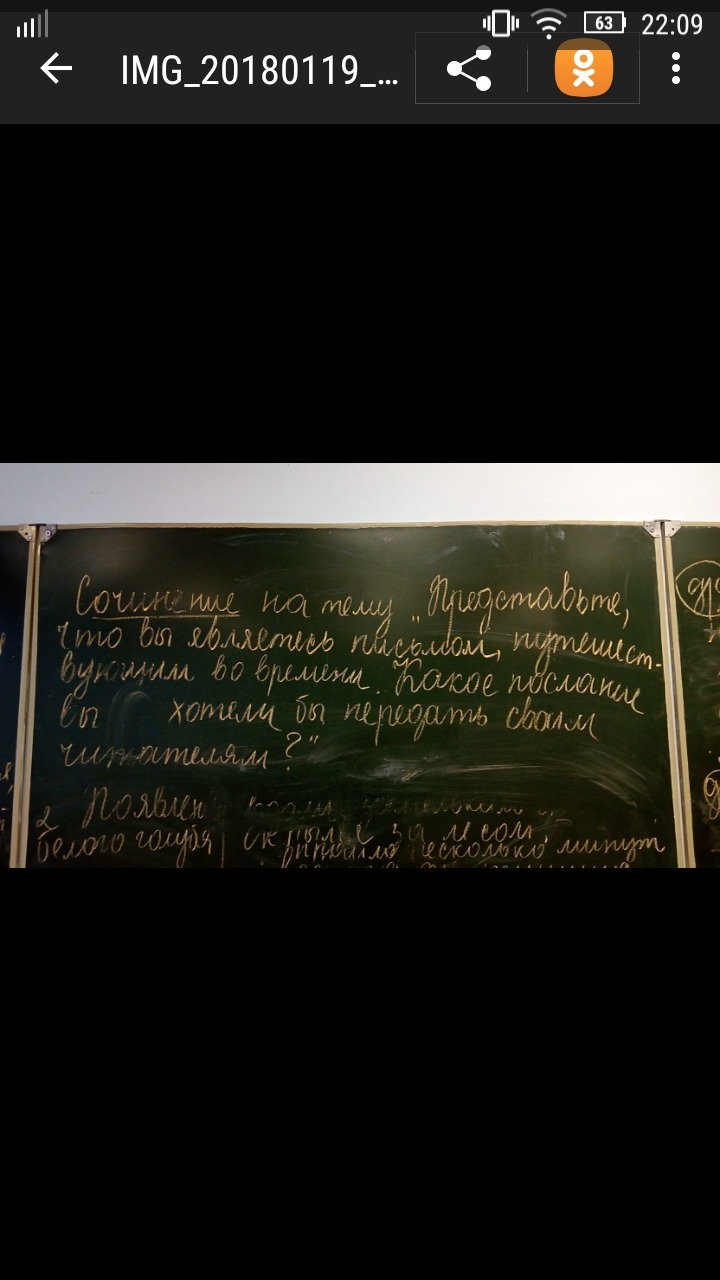 63 22:09
IMG_20180119_...
Сочинение на тему „Представьте,
что вы являетесь письмом, путешест-
вующим во времени. Какое послание
вы хотели бы передать своим
читателям?"
2 Появлен
белого голубя скрылся за лесом.
несколько минут